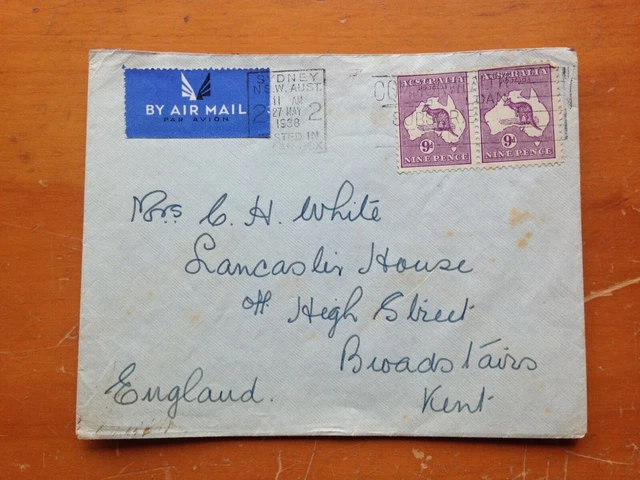 BY AIR MAIL
PAR AVION
SYDNEY
N.S.W. AUST.
11 AM
2 27 MAY 2
1938
POSTED IN
AUSTRALIA
POSTAGE
9D
NINE PENCE
AUSTRALIA
POSTAGE
9D
NINE PENCE
Mrs C. H. White
Lancaster House
off. High Street
Broadstairs
Kent
England.